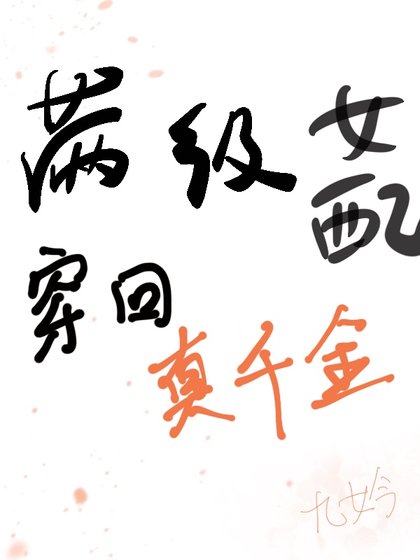 满级
女配
穿回
真千金
九妗